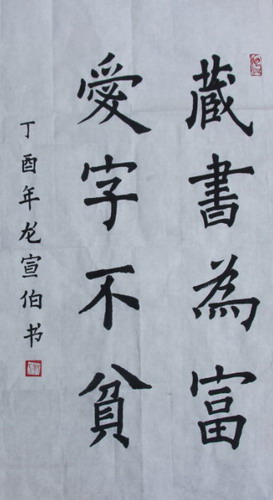 藏書為富
愛字不貧
丁酉年龙宣伯书